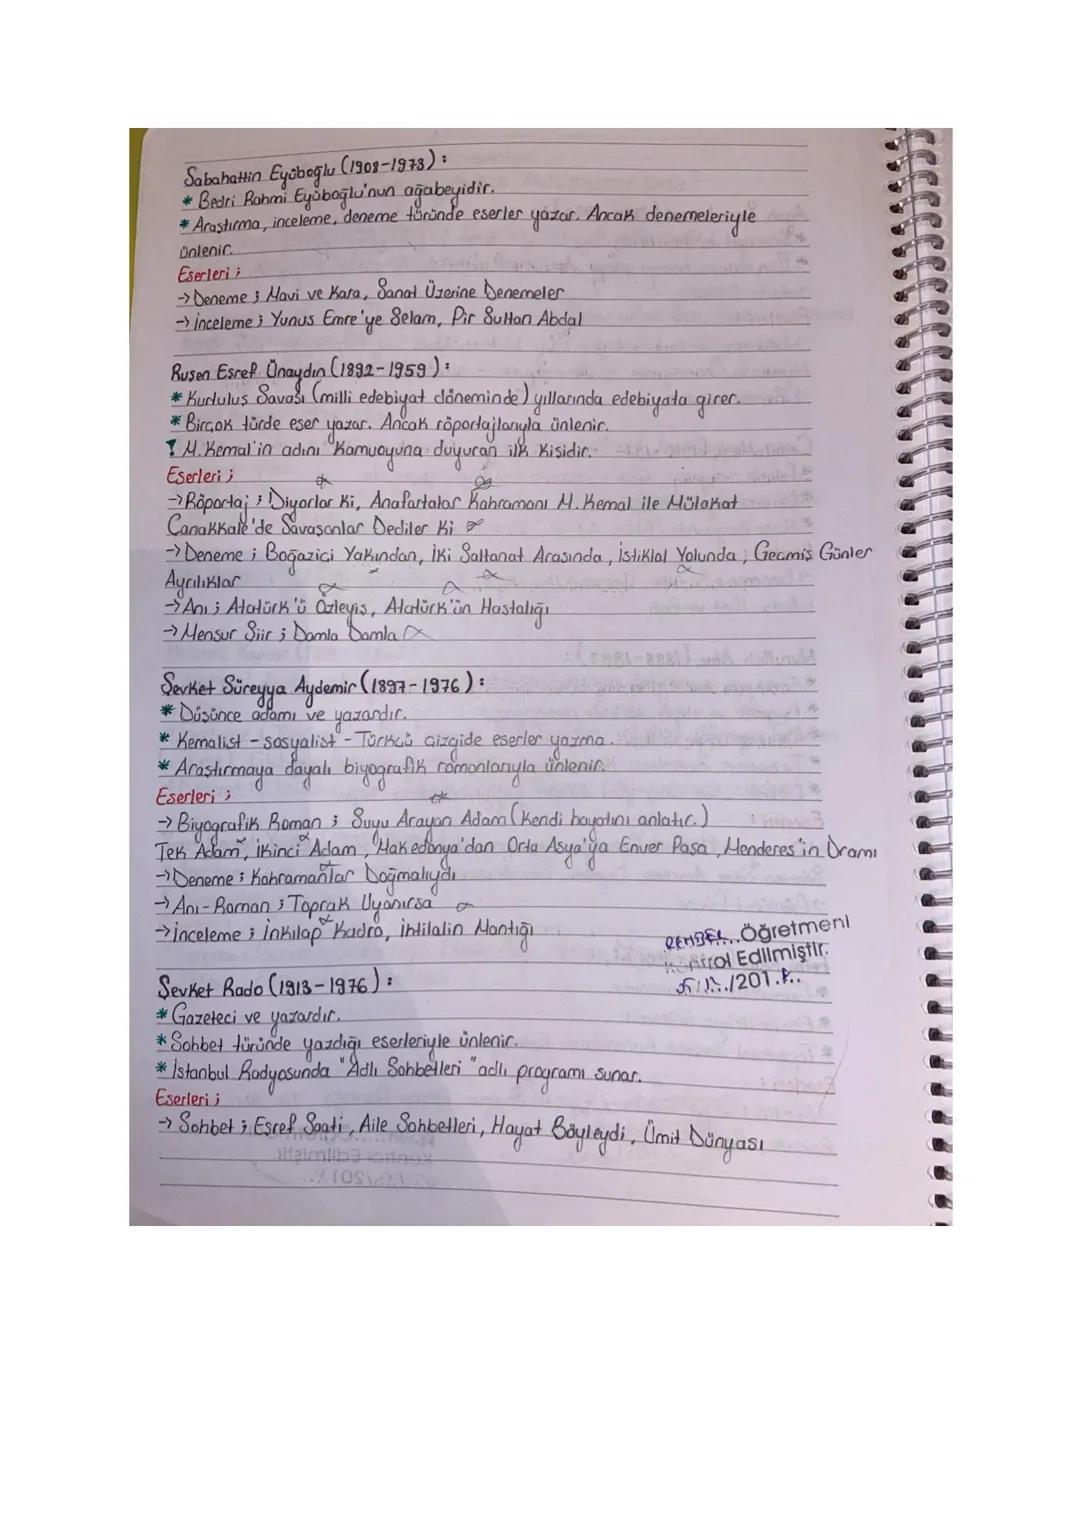 Sabahattin Eyüboğlu (1908-1973):
* Bedri Rahmi Eyüboğlu'nun ağabeyidir.
* Araştırma, inceleme, deneme türünde eserler yazar. Ancak denemeleriyle
ünlenir.
Eserleri;
→ Deneme; Mavi ve Kara, Sanat Üzerine Denemeler
→ İnceleme; Yunus Emre'ye Selam, Pir Sultan Abdal
Ruşen Eşref Ünaydın (1892-1959):
* Kurtuluş Savaşı (milli edebiyat döneminde) yıllarında edebiyata girer.
* Birçok türde eser yazar. Ancak röportajlarıyla ünlenir.
! M.Kemal'in adını kamuoyuna duyuran ilk kişidir.
Eserleri;
→ Röportaj; Diyorlar Ki, Anafartalar Kahramanı M.Kemal ile Mülakat
Çanakkale'de Savaşanlar Dediler Ki
→ Deneme; Boğaziçi Yakından, İki Saltanat Arasında, İstiklal Yolunda, Geçmiş Günler
Ayrılıklar
→ Anı; Atatürk'ü Özleyiş, Atatürk'ün Hastalığı
→ Mensur Şiir; Damla Damla
Şevket Süreyya Aydemir (1897-1976):
* Düşünce adamı ve yazardır.
* Kemalist - sosyalist - Türkçü çizgide eserler yazma.
* Araştırmaya dayalı biyografik romanlarıyla ünlenir.
Eserleri;
→ Biyografik Roman; Suyu Arayan Adam (Kendi hayatını anlatır.)
Tek Adam, İkinci Adam, Makedonya'dan Orta Asya'ya Enver Paşa, Menderes'in Dramı
→ Deneme; Kahramanlar Doğmalıydı
→ Anı-Roman; Toprak Uyanırsa
→ İnceleme; İnkılap Kadro, İhtilalin Mantığı
Öğretmeni
Kontrol Edilmiştir.
Şevket Rado (1913-1976):
* Gazeteci ve yazardır.
* Sohbet türünde yazdığı eserleriyle ünlenir.
* İstanbul Radyosunda "Adlı Sohbetleri" adlı programı sunar.
Eserleri;
→ Sohbet; Eşref Saati, Aile Sohbetleri, Hayat Böyleydi, Ümit Dünyası